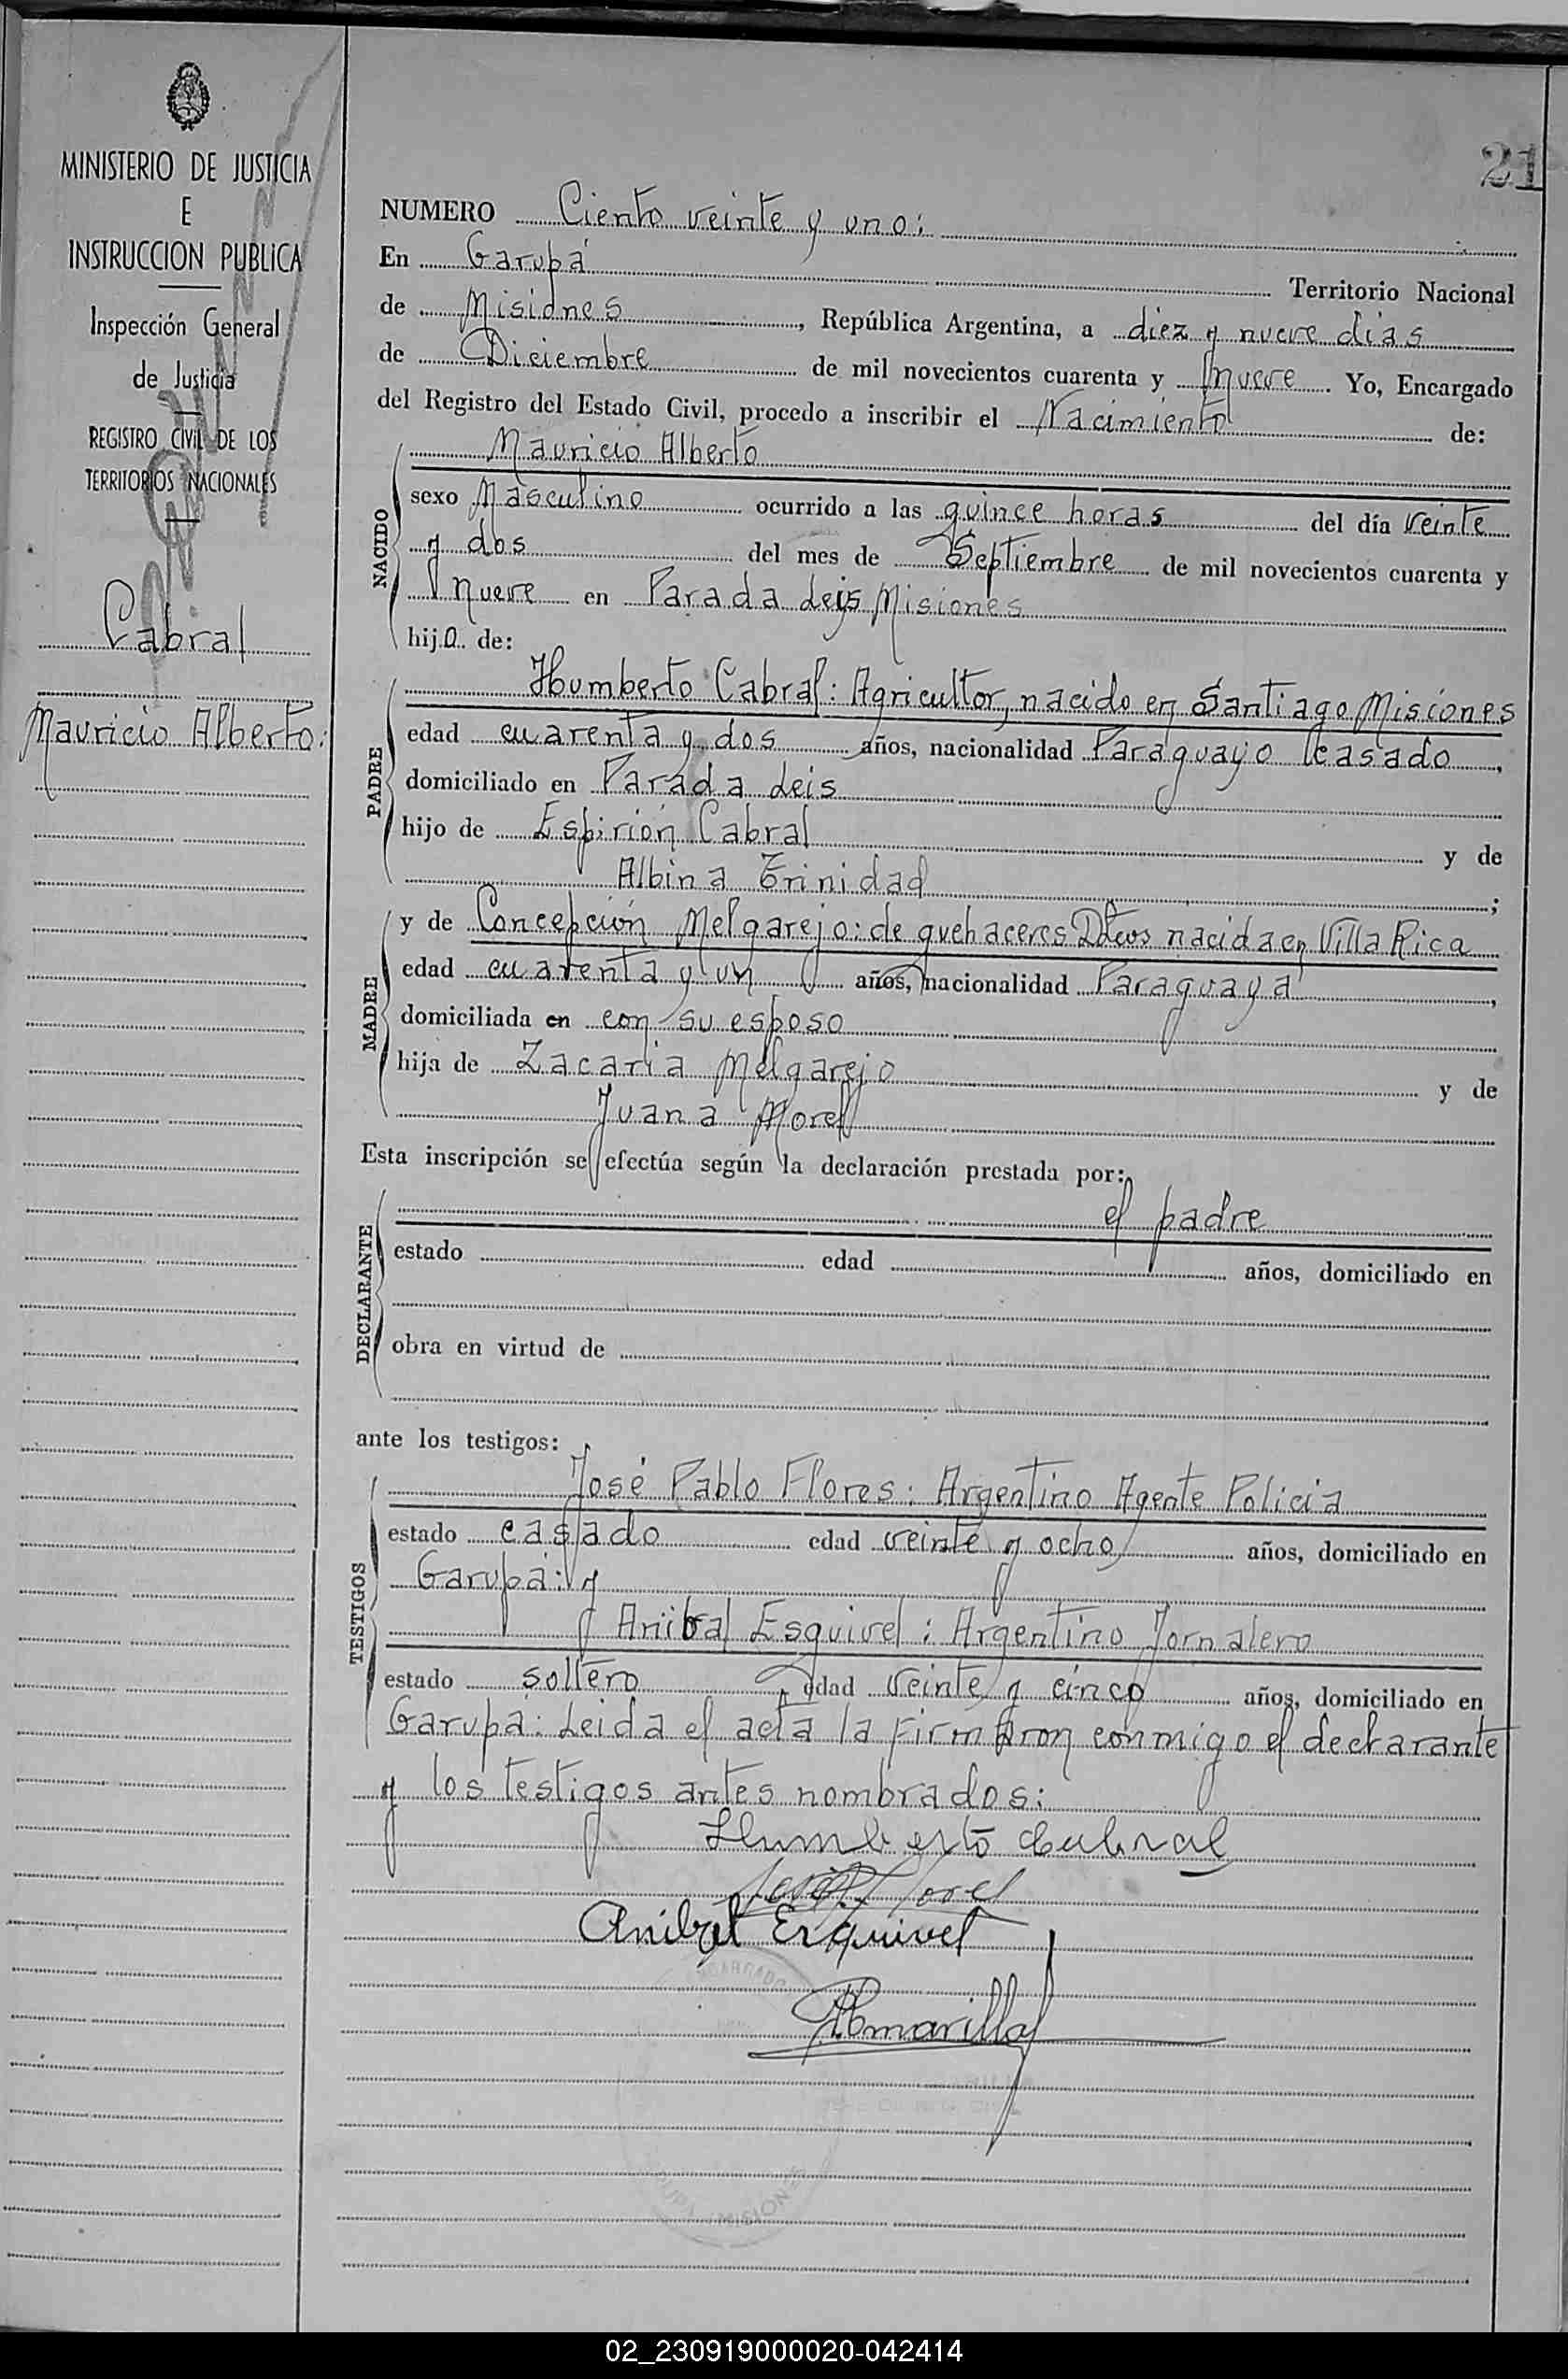 21
MINISTERIO DE JUSTICIA
E
INSTRUCCION PUBLICA
Inspección General
de Justicia
REGISTRO CIVIL DE LOS
TERRITORIOS NACIONALES
Cabral
Mauricio Alberto:
NUMERO Ciento veinte y uno:
En Garupá Territorio Nacional
de Misiones, República Argentina, a diez y nueve dias
de Diciembre de mil novecientos cuarenta y nueve. Yo, Encargado
del Registro del Estado Civil, procedo a inscribir el Nacimiento de:
NACIDO
Mauricio Alberto
sexo Masculino ocurrido a las quince horas del día veinte
y dos del mes de Septiembre de mil novecientos cuarenta y
nueve en Parada Leis Misiones
hijo de:
PADRE
Humberto Cabral: Agricultor, nacido en Santiago Misiones
edad cuarenta y dos años, nacionalidad Paraguayo casado,
domiciliado en Parada Leis
hijo de Espirión Cabral y de
Albina Trinidad;
MADRE
y de Concepción Melgarejo: de quehaceres Dtcos nacida en Villa Rica
edad cuarenta y un años, nacionalidad Paraguaya,
domiciliada en con su esposo
hija de Zacaria Melgarejo y de
Juana Morel
Esta inscripción se efectúa según la declaración prestada por:
DECLARANTE
el padre
estado edad años, domiciliado en
obra en virtud de
ante los testigos:
TESTIGOS
José Pablo Flores: Argentino Agente Policia
estado casado edad veinte y ocho años, domiciliado en
Garupá: y
Anibal Esquivel: Argentino Jornalero
estado soltero edad veinte y cinco años, domiciliado en
Garupá: Leida el acta la firmaron conmigo el declarante
y los testigos antes nombrados:
Humberto Cabral
Anibal Esquivel
Amarilla
ENCARGADO
MISIONES
02_230919000020-042414